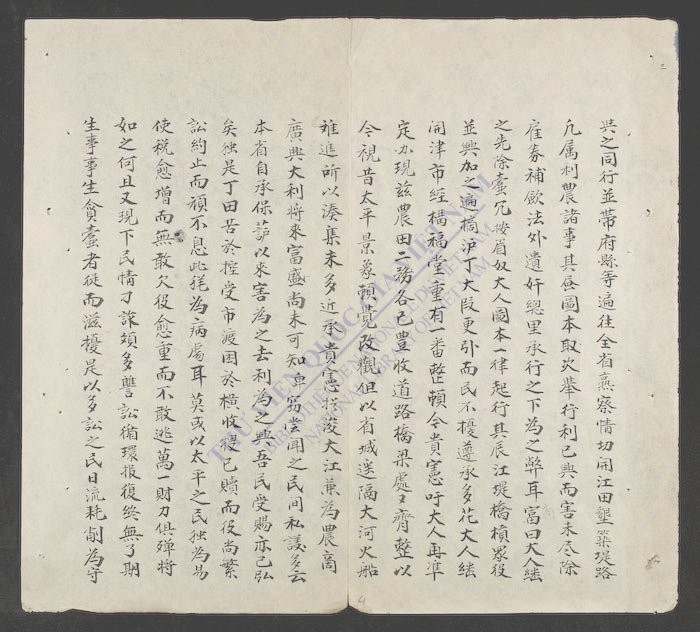 與之同行並帶府縣等遍往全省熏察情切開江田墾築堤路
凡属利農諸事其蚕圖本取次舉行利已興而害未尽除
雇券補歛法外遺奸總里承行之下為之弊耳富曰大人繼
之先除蠹冗按眉奴大人圖本一律起行其辰江堤橋積眾役
並興加之遍摘沪丁大段更引而民不擾遵承多花大人繼
開津市經橋福堂重有一番整頓今貴憲吁大人再準
定办現玆農田二務各已豊收道路橋梁處〻齊整以
今視昔太平景象頼覺改觀但以省城逕隔大河火船
难進所以湊集未多近承貴憲挖浚大江兼為農商
廣興大利将來富盛尚未可知卑窃嘗聞之民間私議多云
本省自承保護以來害為之去利為之興吾民受賜亦已弘
矣独是丁田苦於控受市渡困於横收稷已贖而役尚繁
訟約止而頑不息此採為病處耳莫或以太平之民独為易
使税愈增而無敢欠役愈重而不敢逃萬一財力俱殫将
如之何且又現下民情刁詐頗多讐訟循環报復終無了期
生事事生貪蠹者従而滋擾是以多訟之民日流耗削為守
THƯ VIỆN QUỐC GIA VIỆT NAM
BIBLIOTHÈQUE NATIONALE DU VIETNAM
NATIONAL LIBRARY OF VIETNAM
二
4